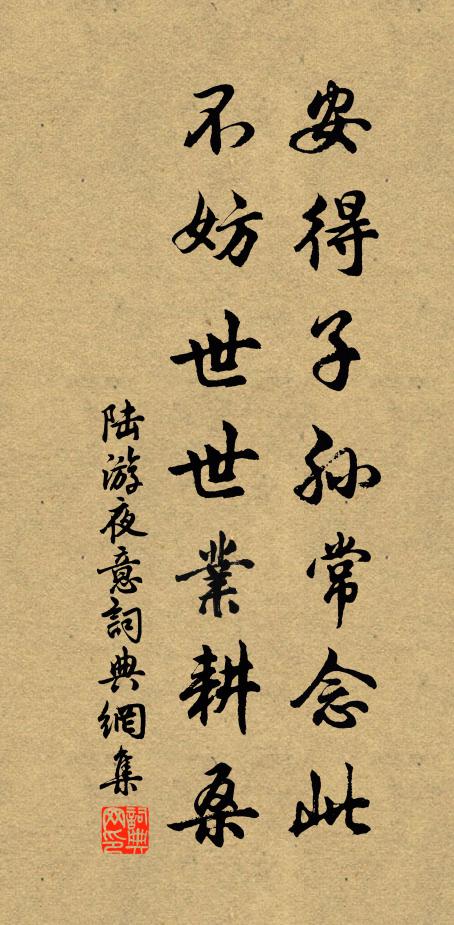 安得子孙常念此
不妨世世業耕桑
陆游夜意詞典網集
詞典网印